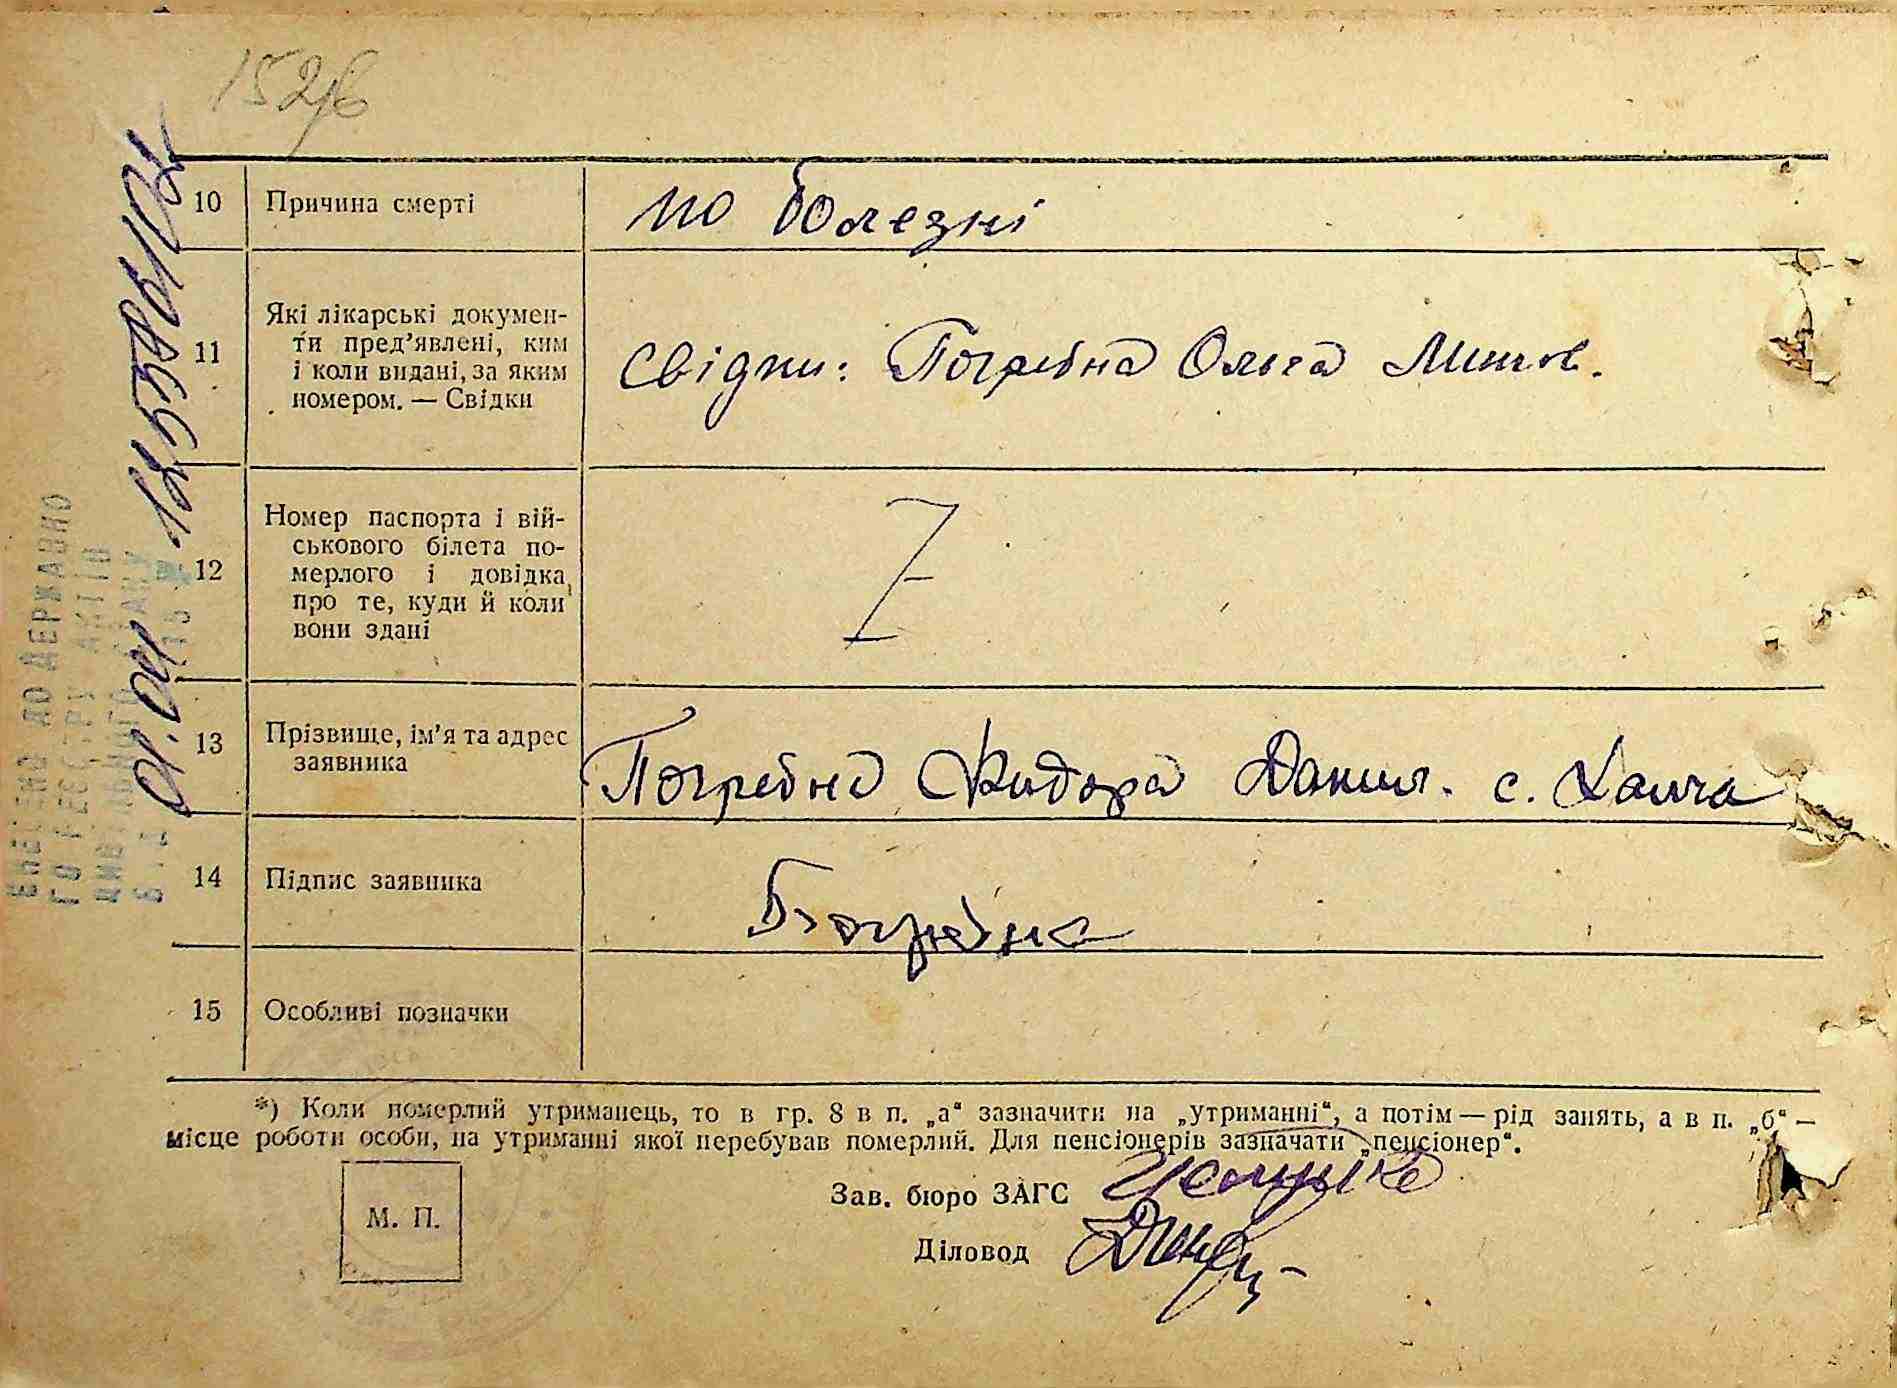 10 Причина смерті по болезні
11 Які лікарські докумен-
ти пред’явлені, ким
і коли видані, за яким
номером. — Свідки
свідки: Погребна Ольга
12 Номер паспорта і вій-
ськового білета по-
мерлого і довідка
про те, куди й коли
вони здані
Z
13 Прізвище, ім’я та адрес
заявника
Погребна Данил. с.
14 Підпис заявника
15 Особливі позначки
*) Коли померлий утриманець, то в гр. 8 в п. „а“ зазначити на „утриманні“, а потім — рід занять, а в п. „б“ —
місце роботи особи, на утриманні якої перебував померлий. Для пенсіонерів зазначати „пенсіонер“.
Зав. бюро ЗАГС
М. П.
Діловод
ВНЕСЕНО ДО ДЕРЖАВНО
ГО РЕЄСТРУ АКТІВ
ЦИВІЛЬНОГО СТАНУ